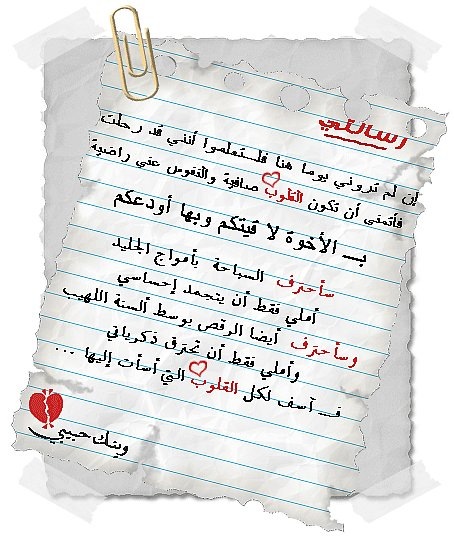 رسالتي
إن لم تروني يوما هنا فلتعلموا أنني قد رحلت
فأتمنى أن تكون القلوب صافية والنفوس عني راضية
بـ الأخوة لا قيتكم وبها أودعكم
سأحترف السباحة بأمواج الجليد
أملي فقط أن يتجمد إحساسي
وسأحترف أيضا الرقص بوسط ألسنة اللهيب
وأملي فقط أن تحترق ذكرياتي
فـ آسف لكل القلوب التي أسأت إليها ...
وينك حبيبي